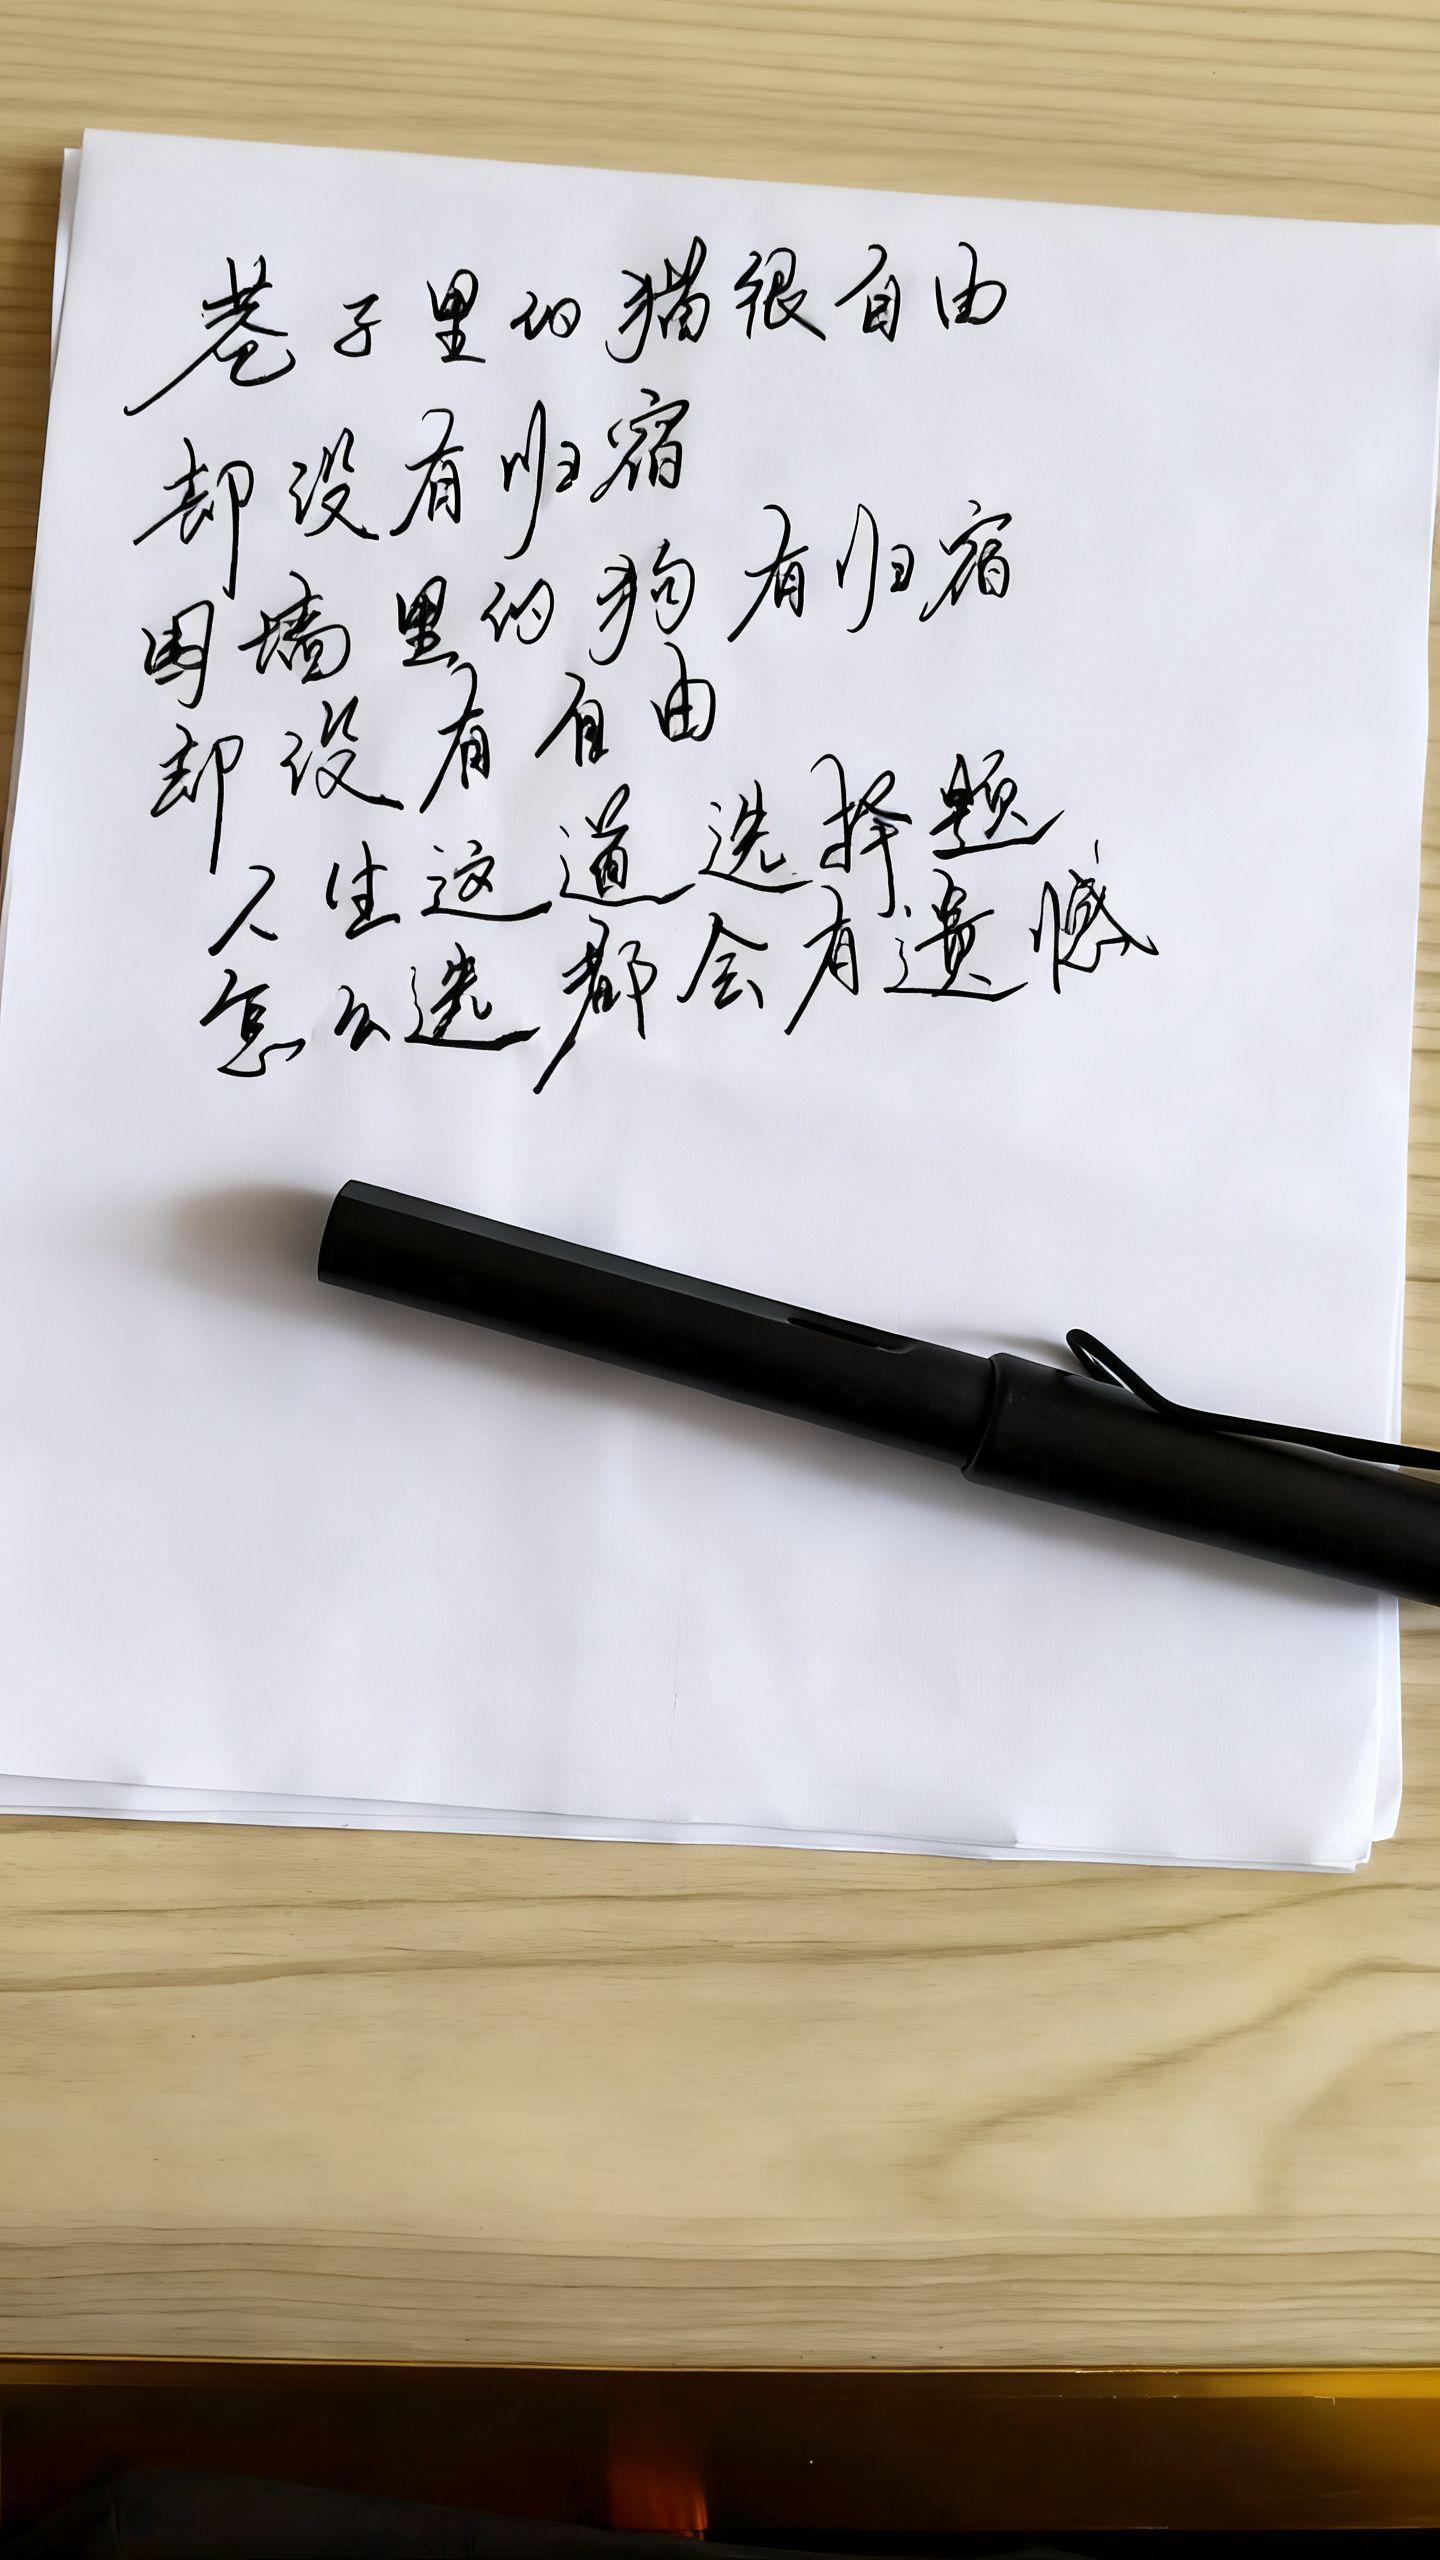 巷子里的猫很自由
却没有归宿
围墙里的狗有归宿
却没有自由
人生这道选择题
怎么选都会有遗憾